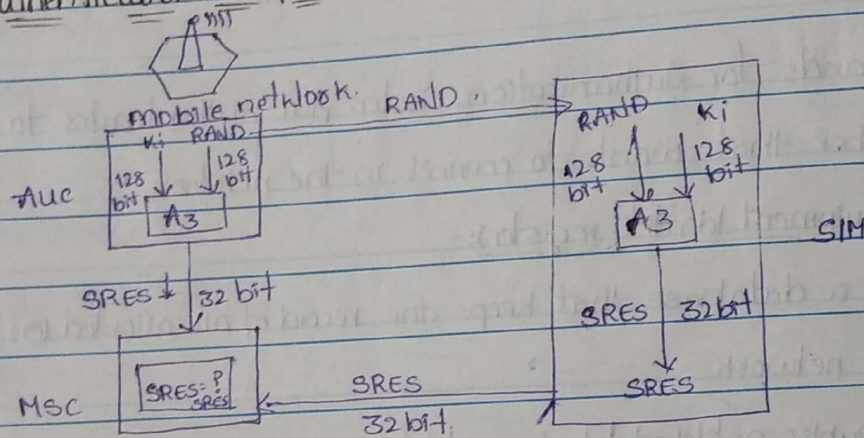 mobile network.
RAND
Ki RAND
128 bit
128 bit
A3
AUC
SRES
32 bit
SRES = ? SRES
MSC
SRES
32 bit
RAND
Ki
128 bit
128 bit
A3
SIM
SRES
32 bit
SRES